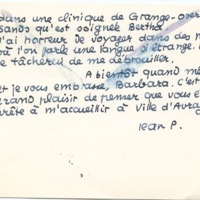 dans une clinique de Grange-over-
Sands qu'est soignée Bertha
J'ai horreur de voyager dans des
où l'on parle une langue si étrange.
tâcherai de me débrouiller.
A bientôt quand mê
et je vous embrasse, Barbara. C'est
grand plaisir de penser que vous ê
prête à m'accueillir à Ville d'Avray
Jean P.